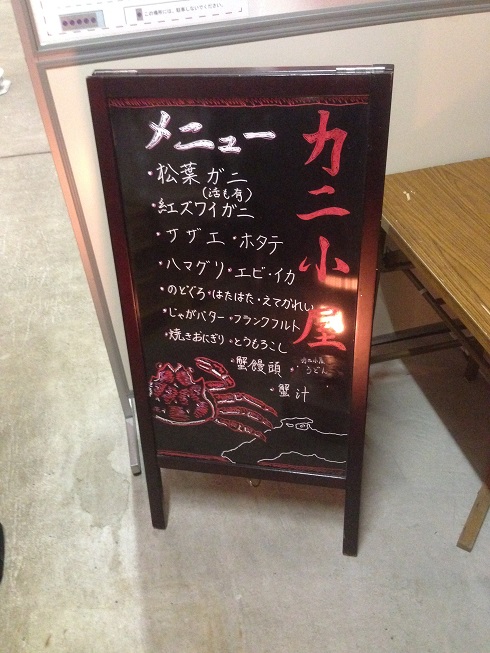 この場所には、駐車しないでください。
カニ小屋
メニュー
・松葉ガニ
(活も有)
・紅ズワイガニ
・サザエ・ホタテ
・ハマグリ・エビ・イカ
・のどぐろ・はたはた・えてがれい
・じゃがバター・フランクフルト
・焼きおにぎり・とうもろこし
・蟹饅頭
・うどん
・蟹汁